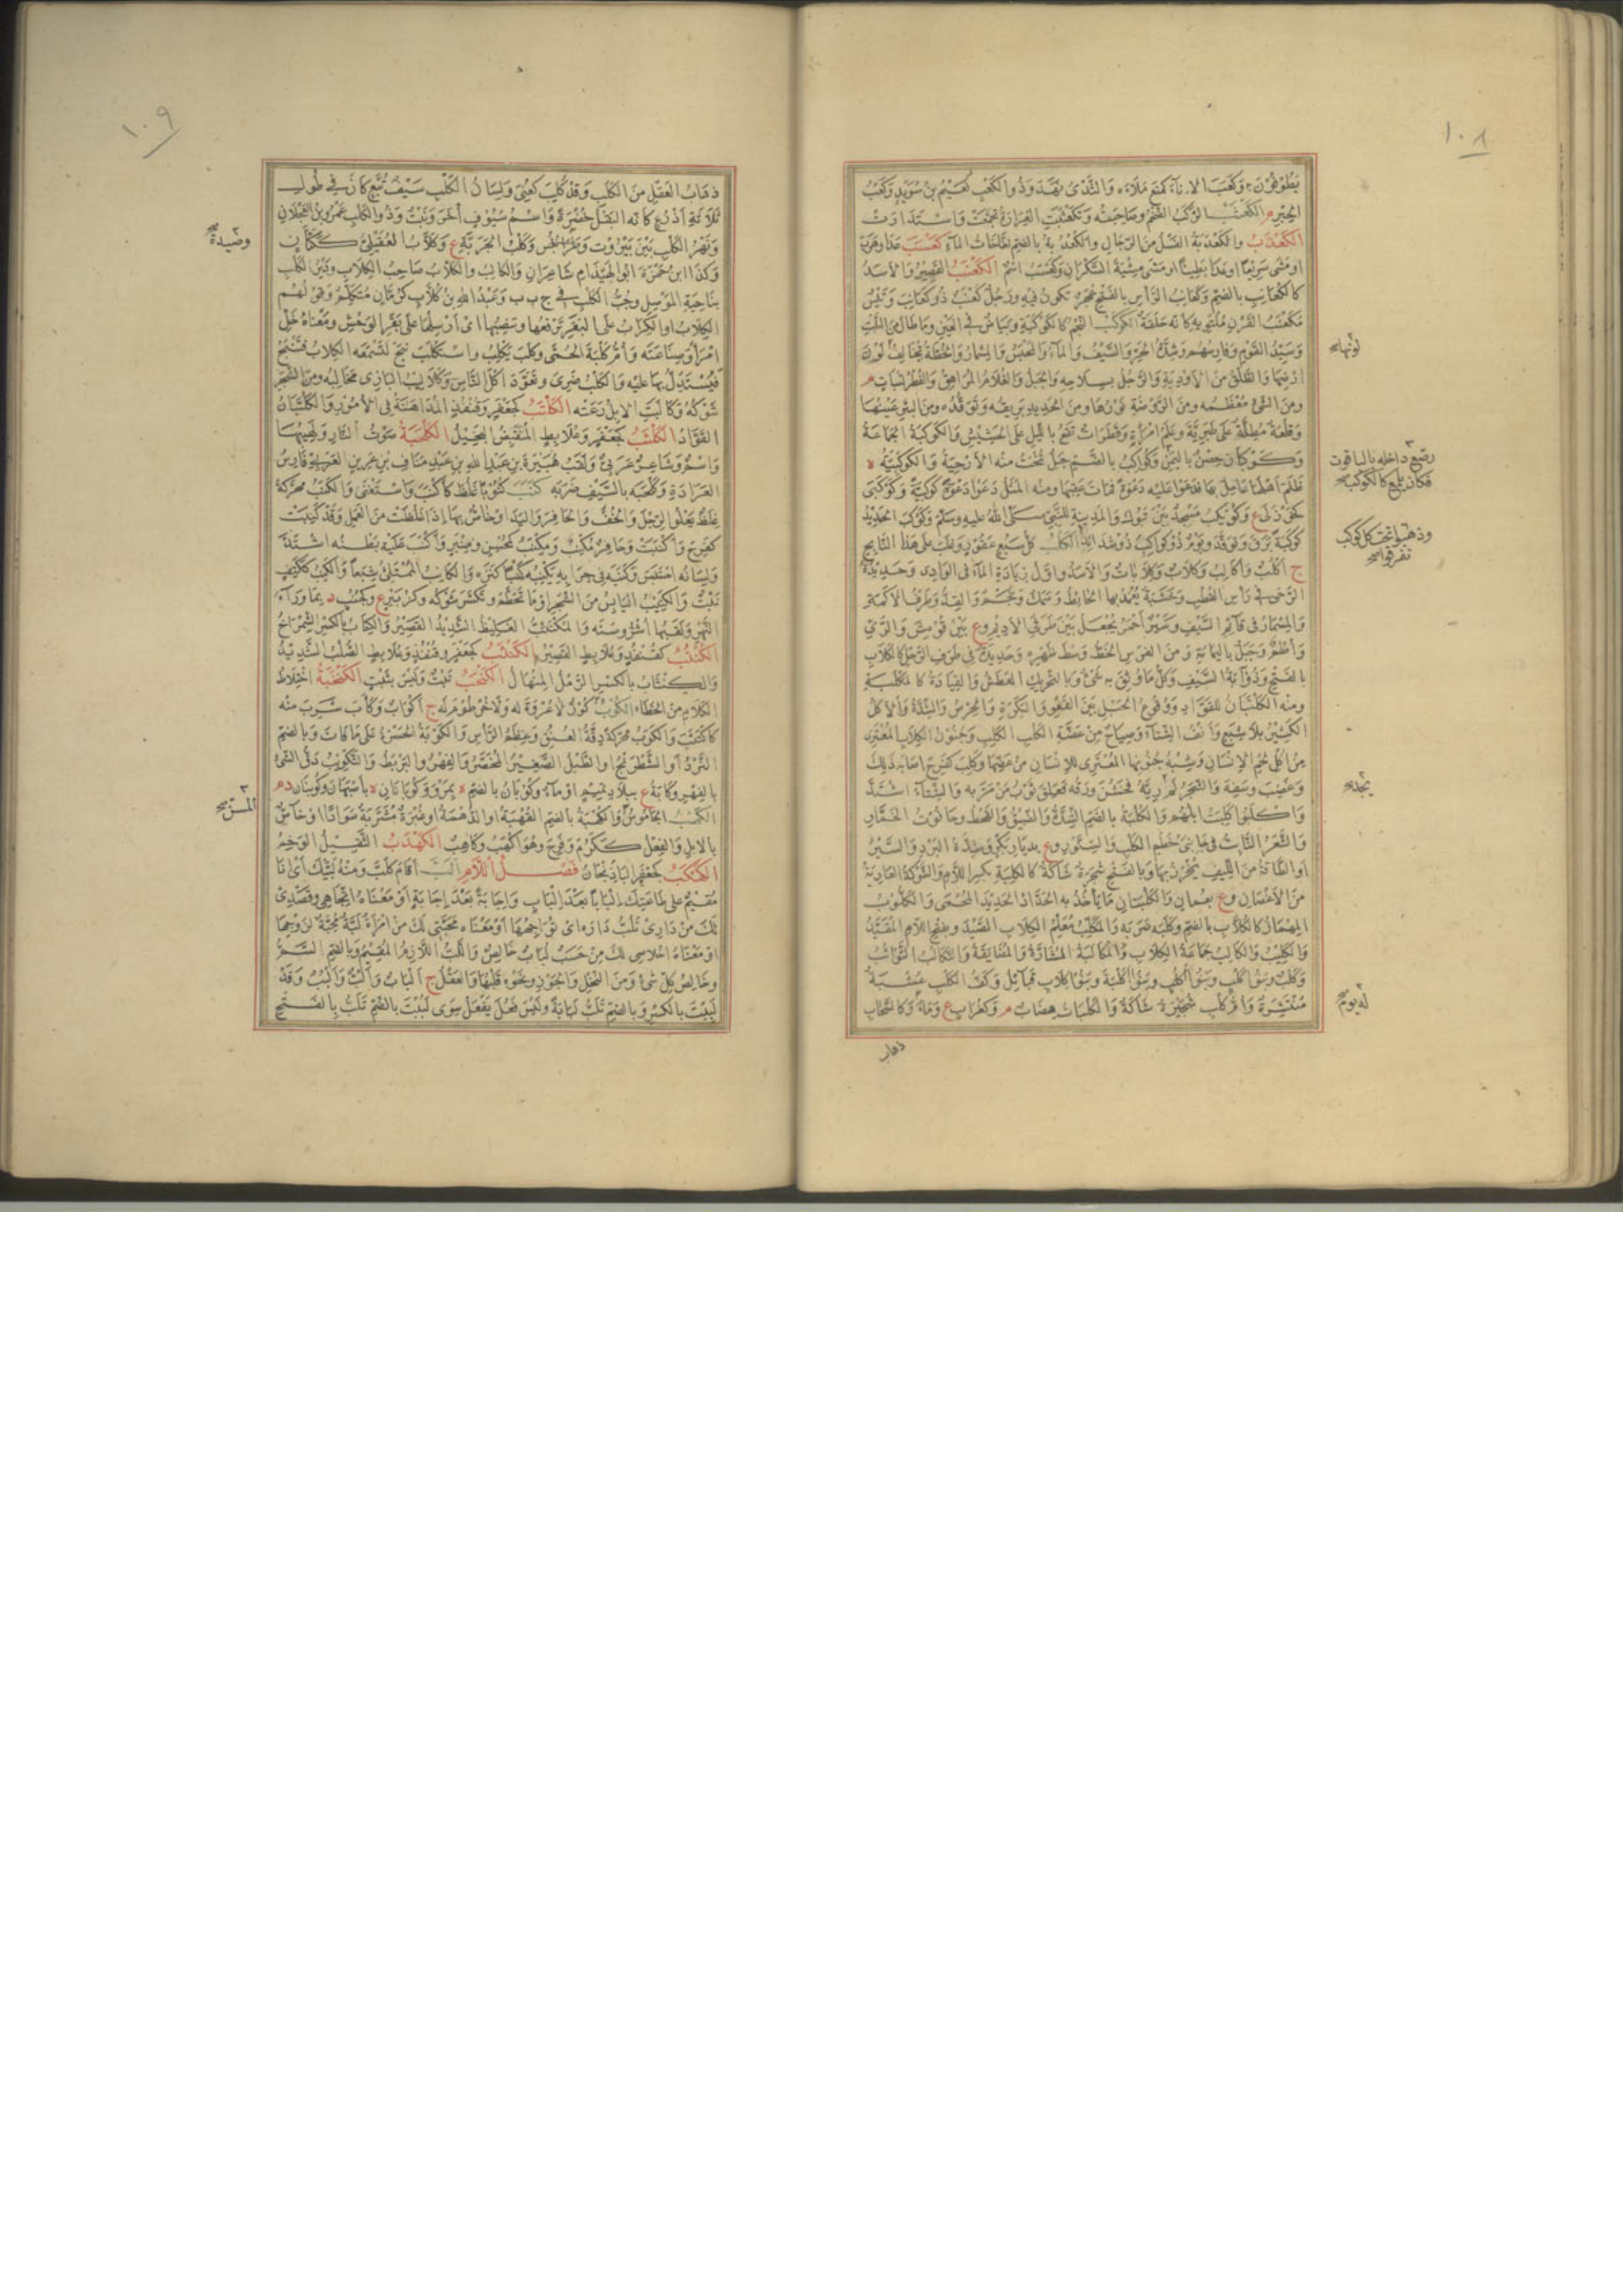 ١٠٨
يطوفون، وكعب الإناء كمنع ملأه والثدي نهد وذو الكعب نعيم بن سويد وكعب
الحبر م الكعثب الركب الضخم وصاحبته وتكعثبت العرارة تجمعت واستدارت
الكعدب والكعدبة الفسل من الرجال والكعدبة بالضم نفاخات الماء كعسب عدا وهرب
او مشى سريعا او عدا بطيئا او مشى مشية السكران وكعسب اسم الكعنب القصير والاسد
كالكعانب بالضم وكعانب الرأس بالفتح عجر تكون فيه ورجل كعنب ذو كعانب وتيس
مكعنب القرن ملتويه كأنه حلقة الكوكب النجم كالكوكبة وبياض في العين وما طال من النبت
وسيد القوم وفارسهم وشدة الحر والسيف والماء والمحبس والمسمار والخطة يخالف لون
ارضها والطلق من الأودية والرجل بسلاحه والجبل والغلام المراهق والفطر لنبات م
ومن الشئ معظمه ومن الروضة نورها ومن الحديد بريقه وتوقده ومن البئر عينها
وقلعة مطلة على طبرية وعلم امرأة وقطرات تقع بالليل على الحشيش والكوكبة الجماعة
وكوكبان حصن باليمن وكواكب بالضم جبل تنحت منه الأرحية والكوكبية ة
ظلم أهلها عامل بها فدعوا عليه دعوة فمات عقبها ومنه المثل دعوا دعوة كوكبية وكوكبى
كخوزلى ع وكويكب مسجد بين تبوك والمدينة للنبي صلى الله عليه وسلم وكوكب الحديد
كوكبة برق وتوقد ويوم ذو كواكب ذو شدائد الكلب كل سبع عقور وغلب على هذا النابح
ج اكلب وأكالب وكلاب وكلابات والاسد واول زيادة الماء في الوادي وحديدة
الرحى في رأس القطب وخشبة يعمد بها الحائط وسمك ونجم والقد وطرف الأكمة
والمسمار في قائم السيف وسير أحمر يجعل بين طرفي الأديم وع بين قومس والري
وأطم وجبل باليمامة ومن الفرس الخط وسط ظهره وحديدة في طرف الرحل كالكلاب
بالفتح وذؤابة السيف وكل ما وثق به شئ وبالتحريك العطش والقيادة كالمكلبة
ومنه الكلتبان للقواد ووقوع الحبل بين القعو والبكرة والحرص والشدة والأكل
الكثير بلا شبع وأنف الشتاء وصياح من عضه الكلب الكلب وجنون الكلاب المعتري
من اكل لحم الإنسان وشبه جنونها المعتري للإنسان من عضها وكلب كفرح أصابه ذلك
وغضب وسفه والشجر لم ريه فخشن ورقه فعلق ثوب من مر به والشتاء اشتد
واكلبوا كلبت إبلهم والكلبة بالضم الشدة والضيق والقحط وحانوت الخمار
والشعر النابت في جانبي خطم الكلب والسنور وع بديار بكر وشدة البرد والسير
او الطاقة من الليف يخرز بها وبالفتح شجرة شاكة كالكلبة بكسر اللام والشوكة العارية
من الأغصان وع بعمان والكلبتان ما يأخذ به الحداد الحديد المحمى والكلوب
المهماز كالكلاب بالضم وكلبه ضربه والمكلب معلم الكلاب الصيد وبفتح اللام المقيد
والكليب والكالب جماعة الكلاب والمكالبة المشارة والمضايقة والتكالب التواثب
وكلب وبنو أكلب وبنو كلب وبنو أكلبة وبنو كلاب قبائل وكف الكلب عشبة
منتشرة وأم كلب شجيرة شاكة والكلبات هضبات م وكغراب ع وماء وكالسحاب
ذهاب
لونها صح
رصع داخله بالياقوت
فكان يلمع كالكوكب صح
وذهبوا تحت كل كوكب
تفرقوا صح
يجد صح
له يوم صح
١٠٩
ذهاب العقل من الكلب وقد كلب كعني ولسان الكلب سيف تبع كان في طول
ثلاثة اذرع كأنه البقل خضرة واسم سيوف أخر ونبت وذو الكلب عمرو بن العجلان
ونهر الكلب بين بيروت وطرابلس وكلب الجربة ع وكلاب العقيلي ككتان
وكذا ابن حمزة ابو الهيذام شاعران والكالب والكلاب صاحب الكلاب ودير الكلب
بناحية الموصل وجب الكلب في ج ب ب وعبد الله بن كلاب كرمان متكلم وقولهم
الكلاب او الكراب على البقر ترفعها وتنصبها اى أرسلها على بقر الوحش ومعناه خل
امرأ وصناعته وأم كلبة الحمى وكلب يكلب واستكلب نبح لتسمعه الكلاب فتنبح
فيستدل بها عليه والكلب ضري وتعود أكل الناس وكلاليب البازي مخالبه ومن الشجر
شوكه وكالبت الإبل رعته الكلتب كجعفر وقنفذ المداهنة في الأمور والكلتبان
القواد الكلثب كجعفر وعلابط المنقبض البخيل الكلحبة صوت النار ولهيبها
واسم وشاعر عرني ولقب هبيرة بن عبد الله بن عبد مناف بن عرين العرني فارس
العرادة وكلحبه بالسيف ضربه كنب كنوبا غلظ كأكنب واستغنى والكنب محركة
غلظ يعلو الرجل والخف والحافر واليد او خاص بها إذا غلظت من العمل وقد كنبت
كفرح وأكنبت وحافر مكنب ومكنب كمحسن ومنبر وأكنب عليه بطنه اشتد
ولسانه احتبس وكنبه في جرابه يكنبه كنبا كنزه والكانب الممتلئ شبعا والكنب ككتف
نبت والكنيب اليابس من الشجر او ما تحطم وتكسر شوكه وكزبير ع وكجنب د بما وراء
النهر ولقبها أشروسنه والمكنئب الغليظ الشديد القصير والكناب بالكسر الشمراخ
الكنتب كقنفذ وعلابط القصير الكنثب كجعفر وقنفذ وعلابط الصلب الشديد
والكنثاب بالكسر الرمل المنهال الكنحب نبت وليس بثبت الكنخبة اختلاط
الكلام من الخطاء الكوب كوز لا عروة له ولا خرطوم له ج أكواب وكاب شرب منه
كاكتاب والكوب محركة دقة العنق وعظم الرأس والكوبة الحسرة على ما فات وبالضم
النرد أو الشطرنج او الطبل الصغير المخصر والفهر والبربط والتكويب دق الشئ
بالفهر وكابة ع ببلاد تميم او ماء وكوبان بالضم ة بمرو وكوبانان ة بأصبهان وكوبنان د م
الكهب الجاموس والكهبة بالضم القهبة او الدهمة او غبرة مشربة سوادا او خاص
بالابل والفعل ككرم وفرح وهو اكهب وكاهب الكهدب الثقيل الوخم
الكهكب كجعفر الباذنجان فصل اللام ألب أقام كلب ومنه لبيك اى انا
مقيم على طاعتك إلبابا بعد إلباب وإجابة بعد إجابة او معناه اتجاهي وقصدي
لك من داري تلب داره اى تواجهها أو معناه محبتي لك من امرأة لبة محبة لزوجها
او معناه إخلاصي لك من حسب لباب خالص واللب اللازم المقيم وبالضم السم
وخالص كل شئ ومن النخل والجوز ونحوه قلبها والعقل ج ألباب وألب وألبب وقد
لببت بالكسر وبالضم تلب لبابة وليس فعل يفعل سوى لببت بالضم تلب بالفتح
وصيدة صح
المسن صح